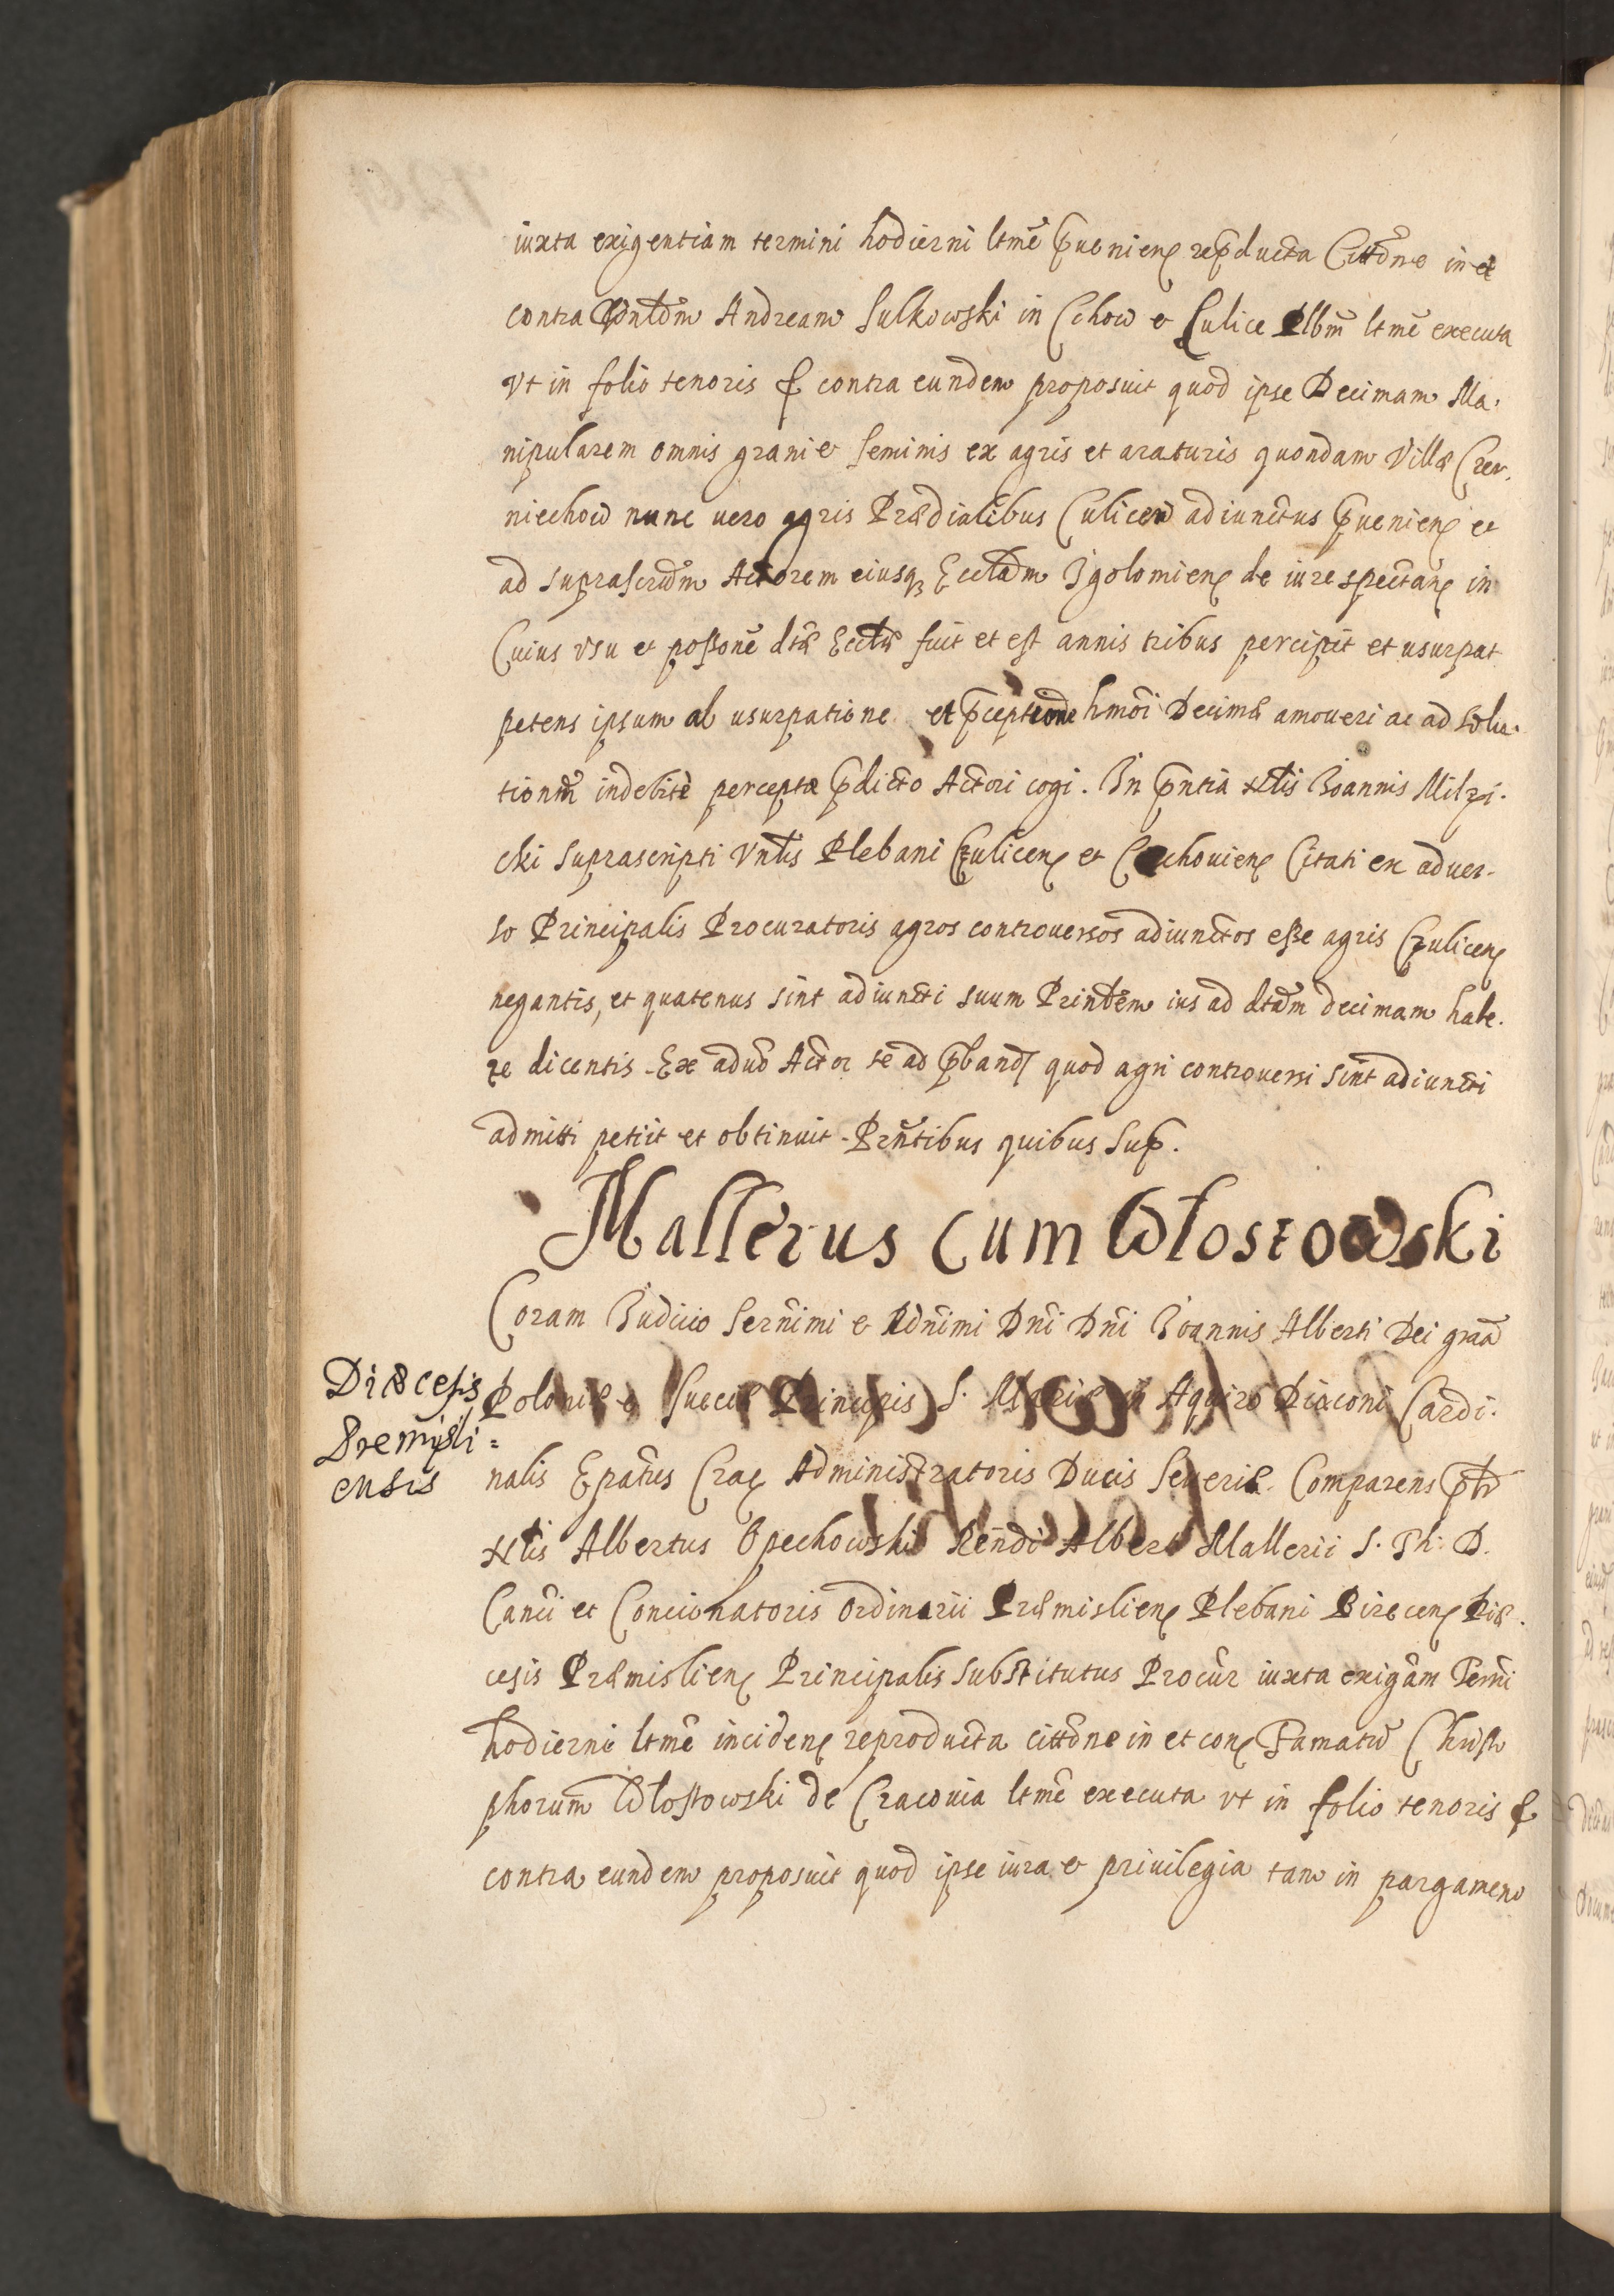 iuxta exigentiam termini hodierni ltmẽ p̃ueniens rep̃ducta Citt̃one in et
contra Vnłdm Andream Sulkowski in Cchow et Culice Plbm̃ ltmẽ executa
vt in folio tenoris & contra eundem proposuit quod ipse Decimam Ma-
nipularem omnis grani et seminis ex agris et araturis quondam Villæ Czer-
niechow nunc uero agris Prædialibus Culicen adiunctus p̃uenien et
ad suprascr̃dm Actorem eiusq3 Eccł̃am Igolomien de iure spectan in
Cuius vsu et poßonẽ dtæ Eccłæ fuit et est annis tribus percipit et usurpat
petens ipsum ab usurpatione et p̃ceptione hmõi Decimæ amoueri ac ad solu-
tionem̃ indebitè perceptæ p̃dicto Actori cogi. In p̃ntia Nłis Ioannis Milzi-
cki suprascripti Vnłis Plebani Czulicen et Czchouien Citati ex aduer-
so Principalis Procuratoris agros controuersos adiunctos eße agris Czulicen
negantis, et quatenus sint adiuncti suum Prinłem ius ad dtam̃ decimam habe-
re dicentis. Ex aduõ Actor se ad p̃band quod agri controuersi sint adiuncti
admitti petiit et obtinuit. Prñtibus quibus sup̃.
Mallerus cum Włostowski
Coram Iudicio Serñimi et Rdñimi Dñi Dñi Ioannis Alberti Dei graã
Diæcesis
Premisli=
ensis
Poloniæ et Sueciæ Principis S. Mariæ in Aquiro Diaconi Cardi-
nalis Ep̃atus Crac Administratoris Ducis Seueriæ. Comparens p̃tr
Nłis Albertus Opechowski Reñdi Alberti Mallerii S. Th: D.
Cañci et Concionatoris Ordinarii Præmislien Plebani Bircen Diæ-
cesis Præmislien Principalis substitutus Procũr iuxta exigãm Termĩ
hodierni ltmẽ inciden reproducta cittõne in et con Famatũ Christo
phorum̃ Włostowski de Cracouia ltmẽ executa vt in folio tenoris &
contra eundem proposuit quod ipse iura et priuilegia tam in pargameno